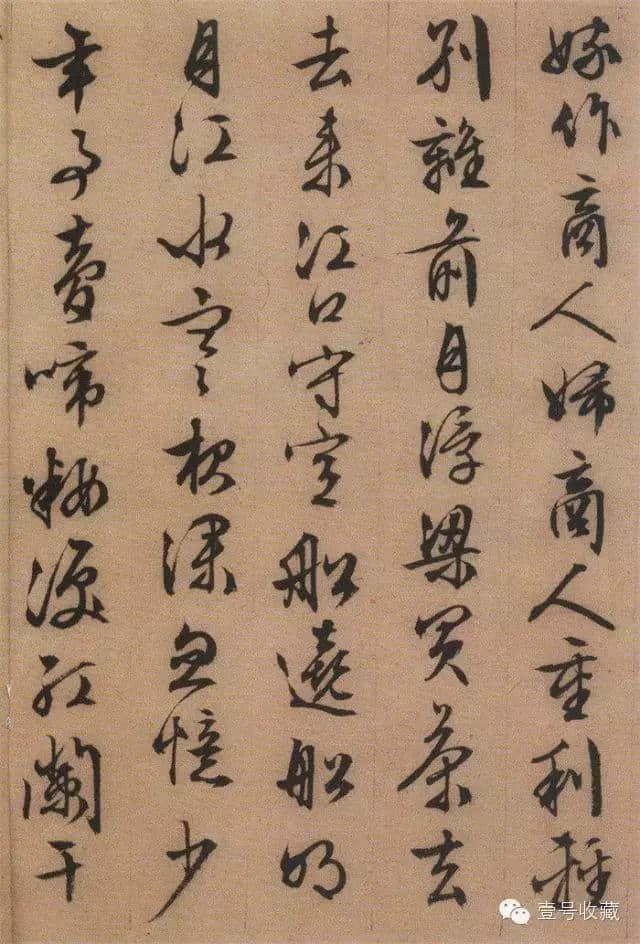 嫁作商人婦商人重利輕
別離前月浮梁買茶去
去来江口守空船遶船明
月江水寒夜深忽憶少
年事夢啼粧淚紅闌干
壹号收藏